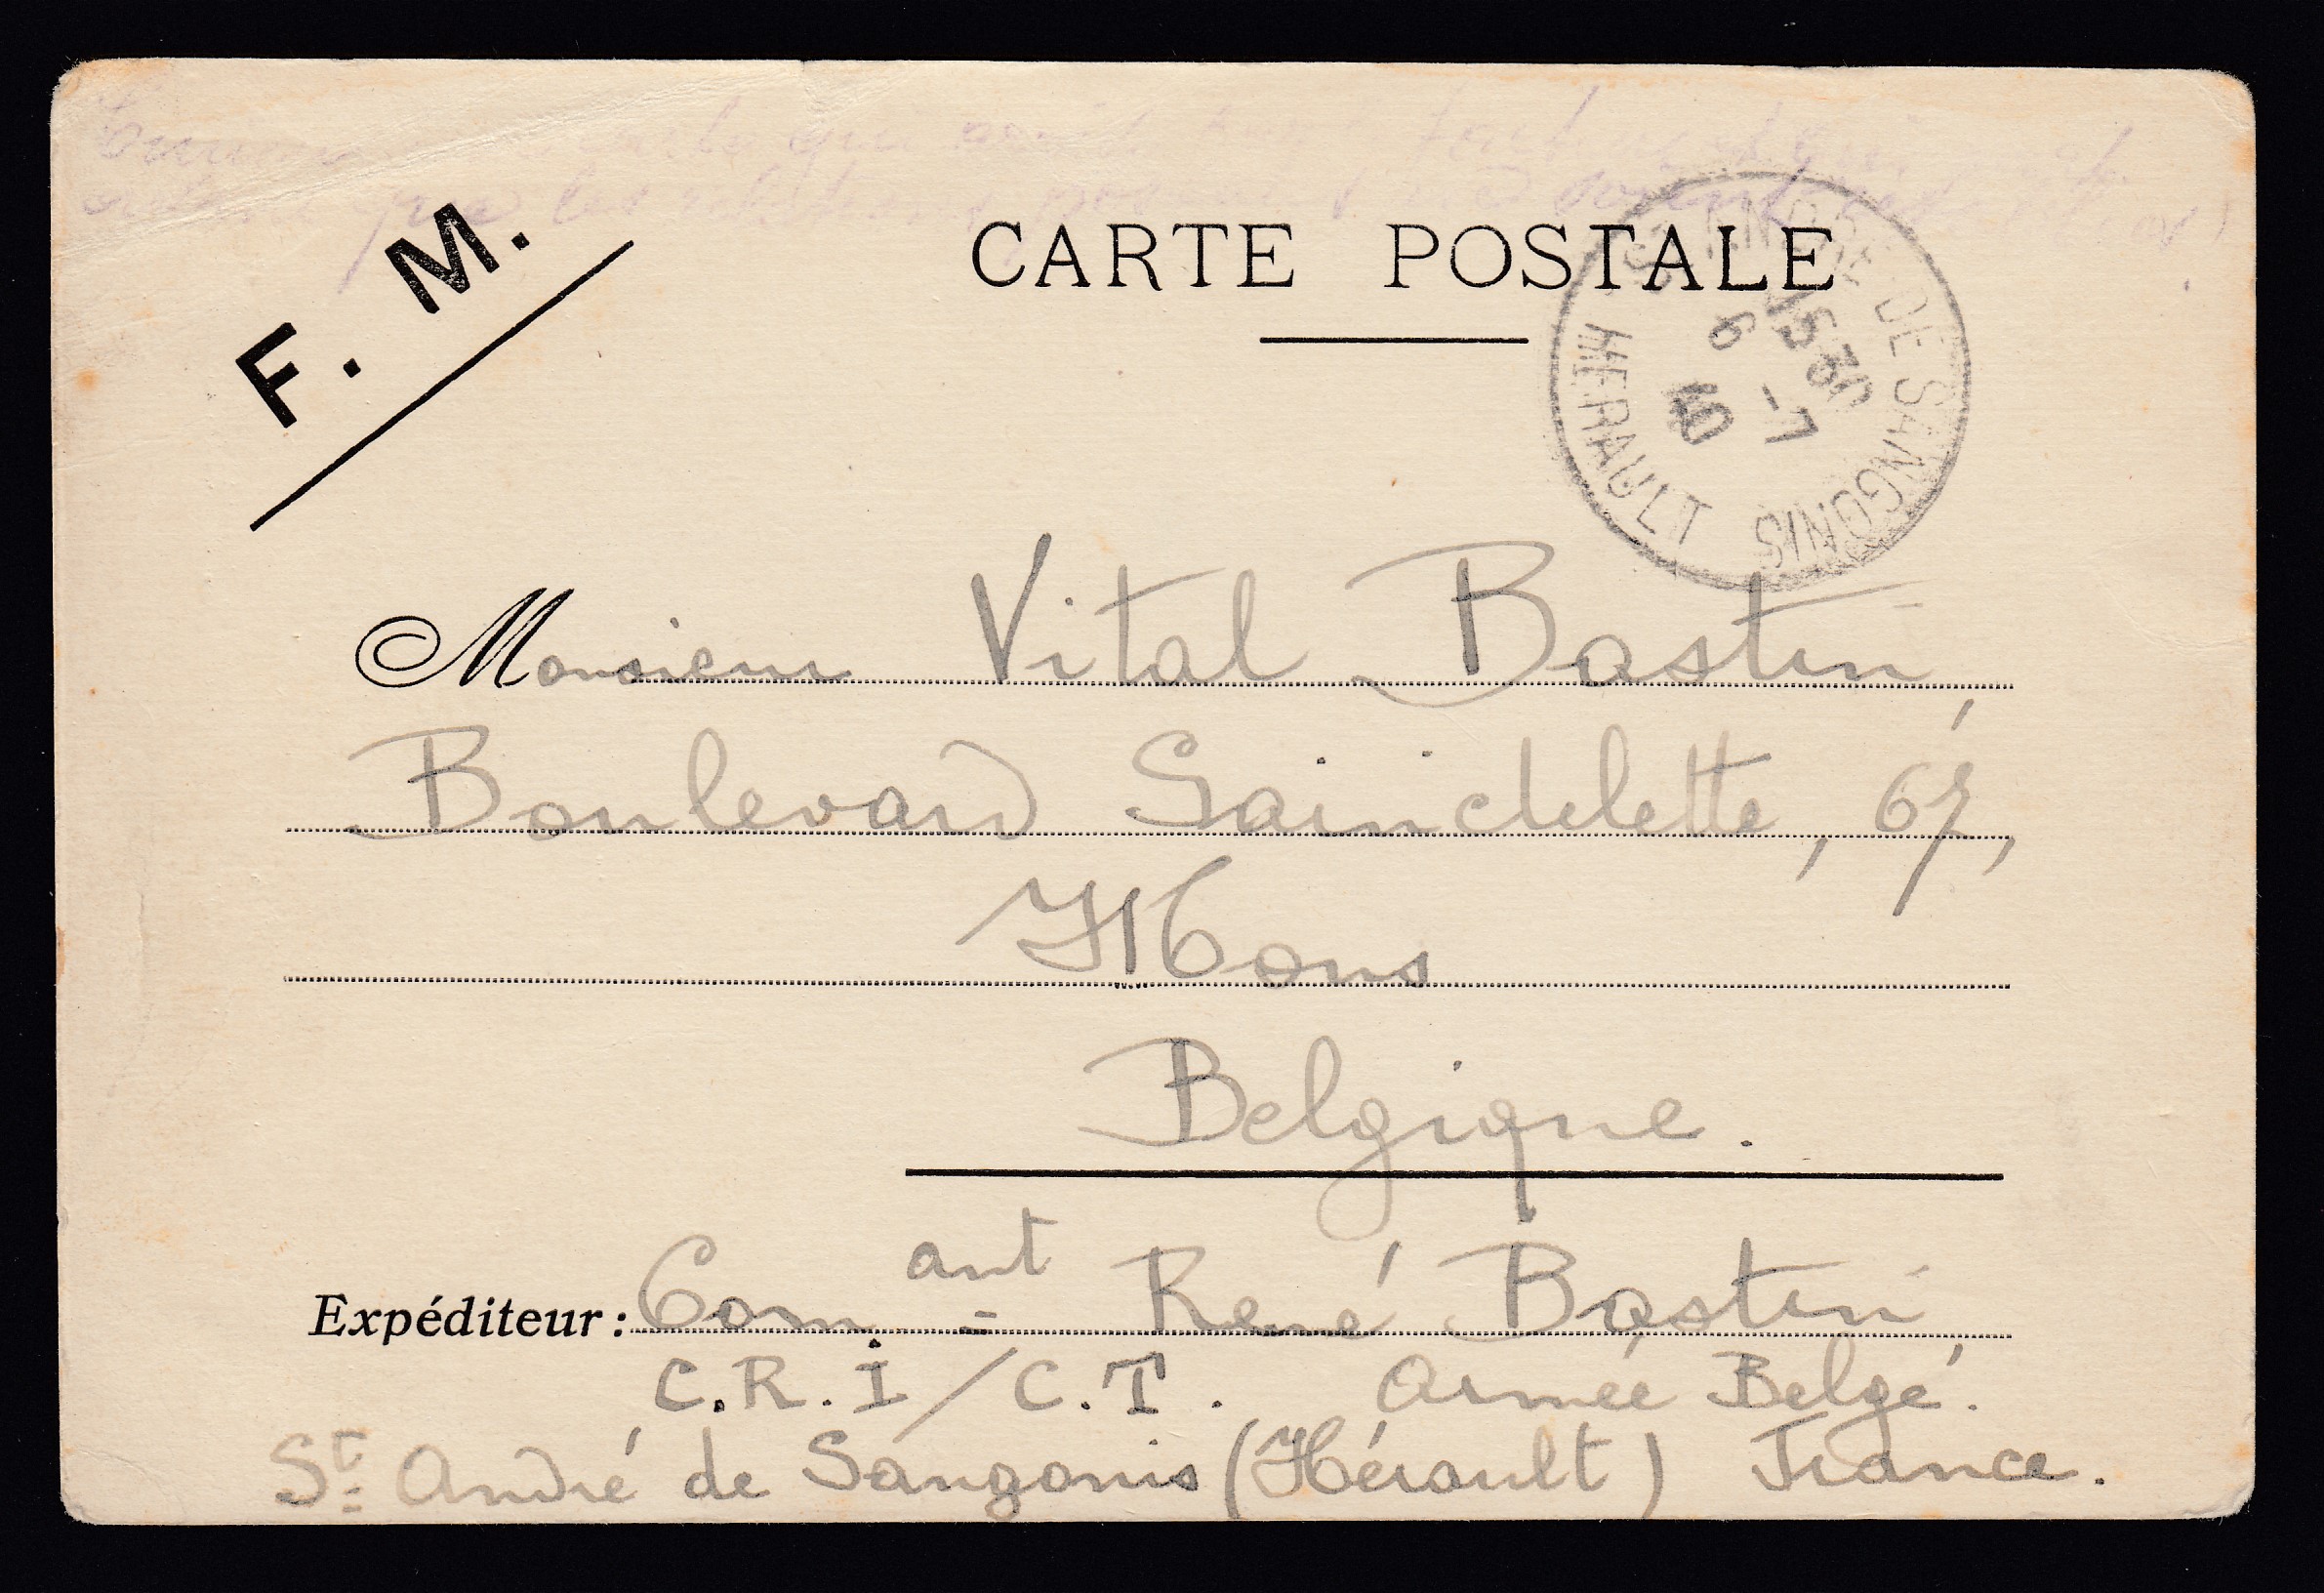 qui
par les
F. M.
CARTE POSTALE
ST ANDRE DE SANGONIS
15 30
6 -7
40
HERAULT
Monsieur Vital Bastin,
Boulevard Sainctelette, 67,
Mons
Belgique.
Expéditeur: Com ant René Bastin
C.R.I/C.T. Armée Belge.
St André de Sangonis (Hérault) France.